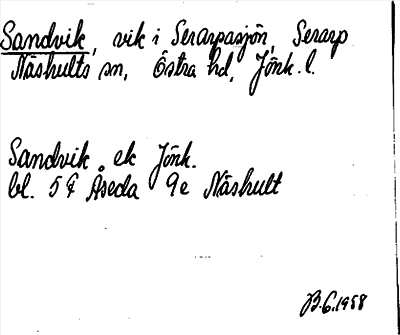 Sandvik, vik i Serarpasjön, Serarp
Näshults sn, Östra hd, Jönk. l.
Sandvik, ek Jönk.
bl. 5F Åseda 9e Näshult
B.G.1958